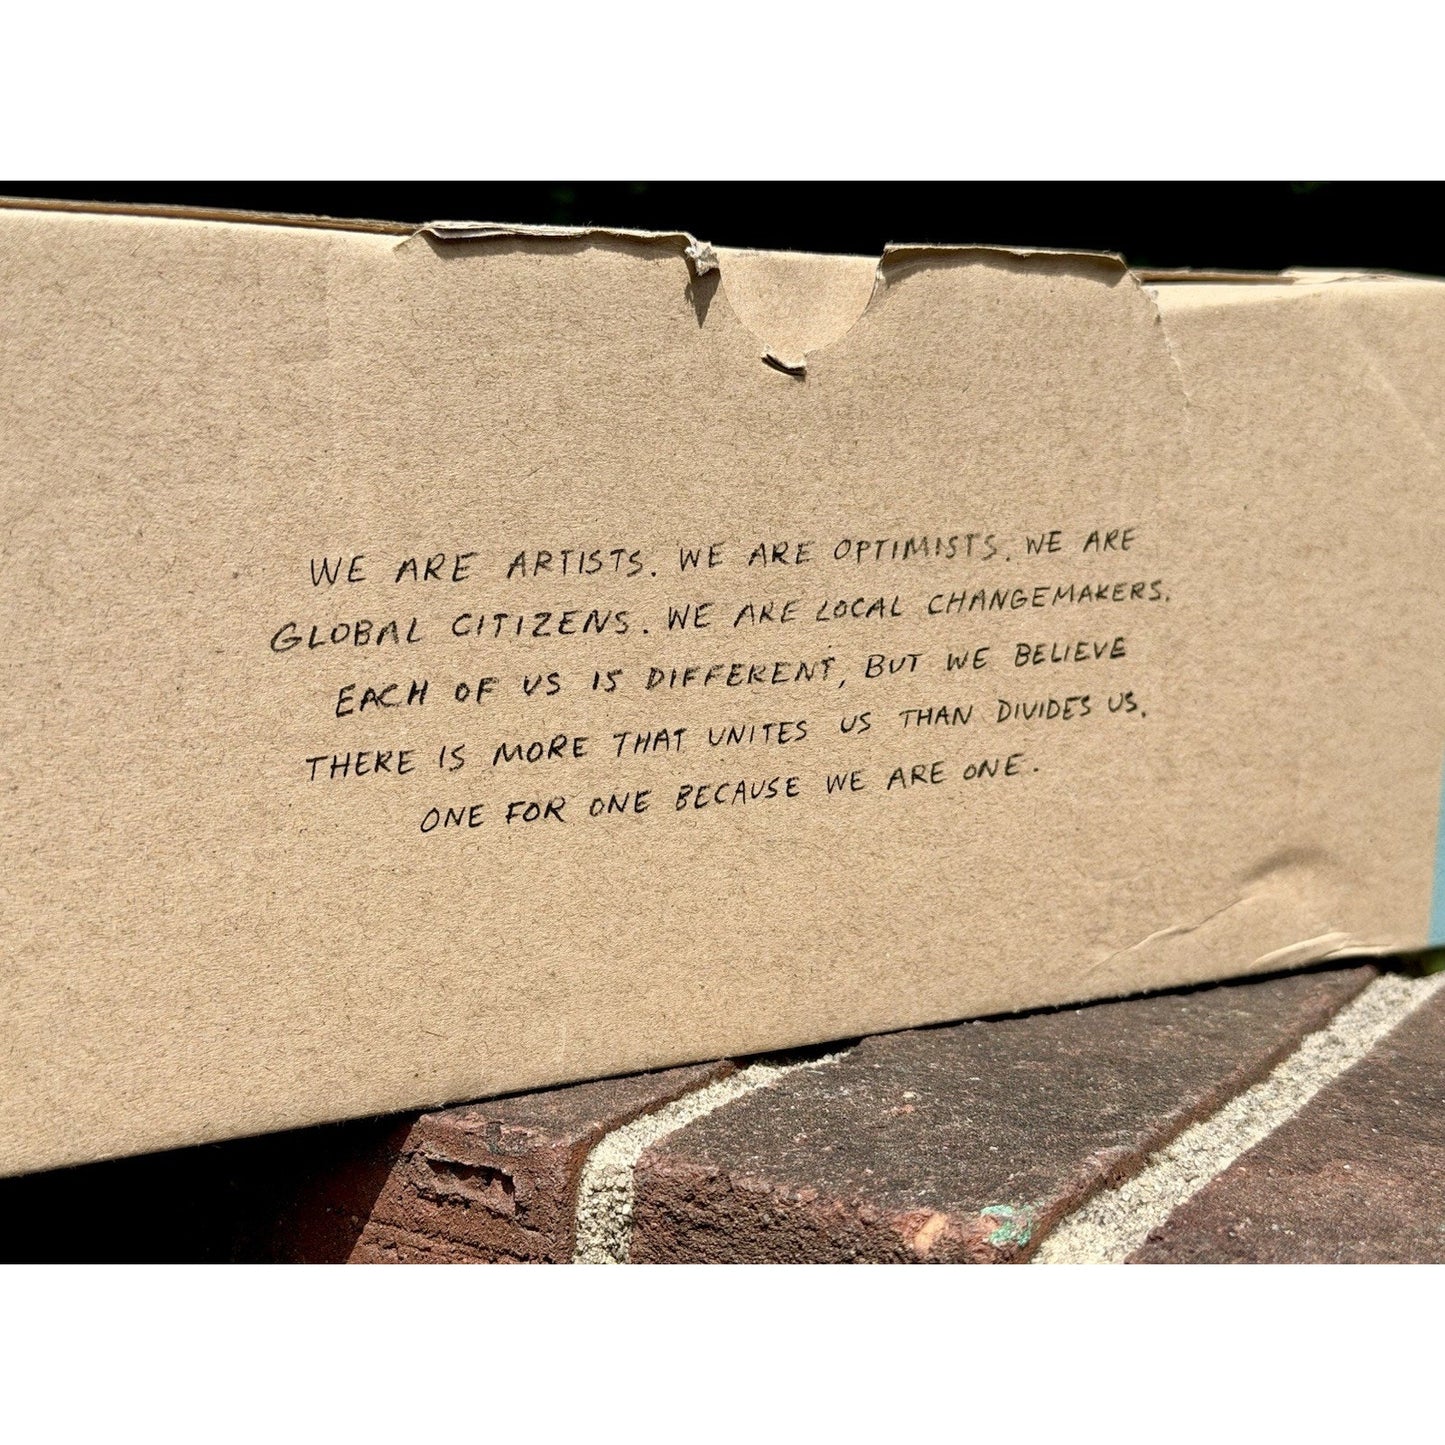 WE ARE ARTISTS. WE ARE OPTIMISTS. WE ARE
GLOBAL CITIZENS. WE ARE LOCAL CHANGEMAKERS.
EACH OF US IS DIFFERENT, BUT WE BELIEVE
THERE IS MORE THAT UNITES US THAN DIVIDES US.
ONE FOR ONE BECAUSE WE ARE ONE.